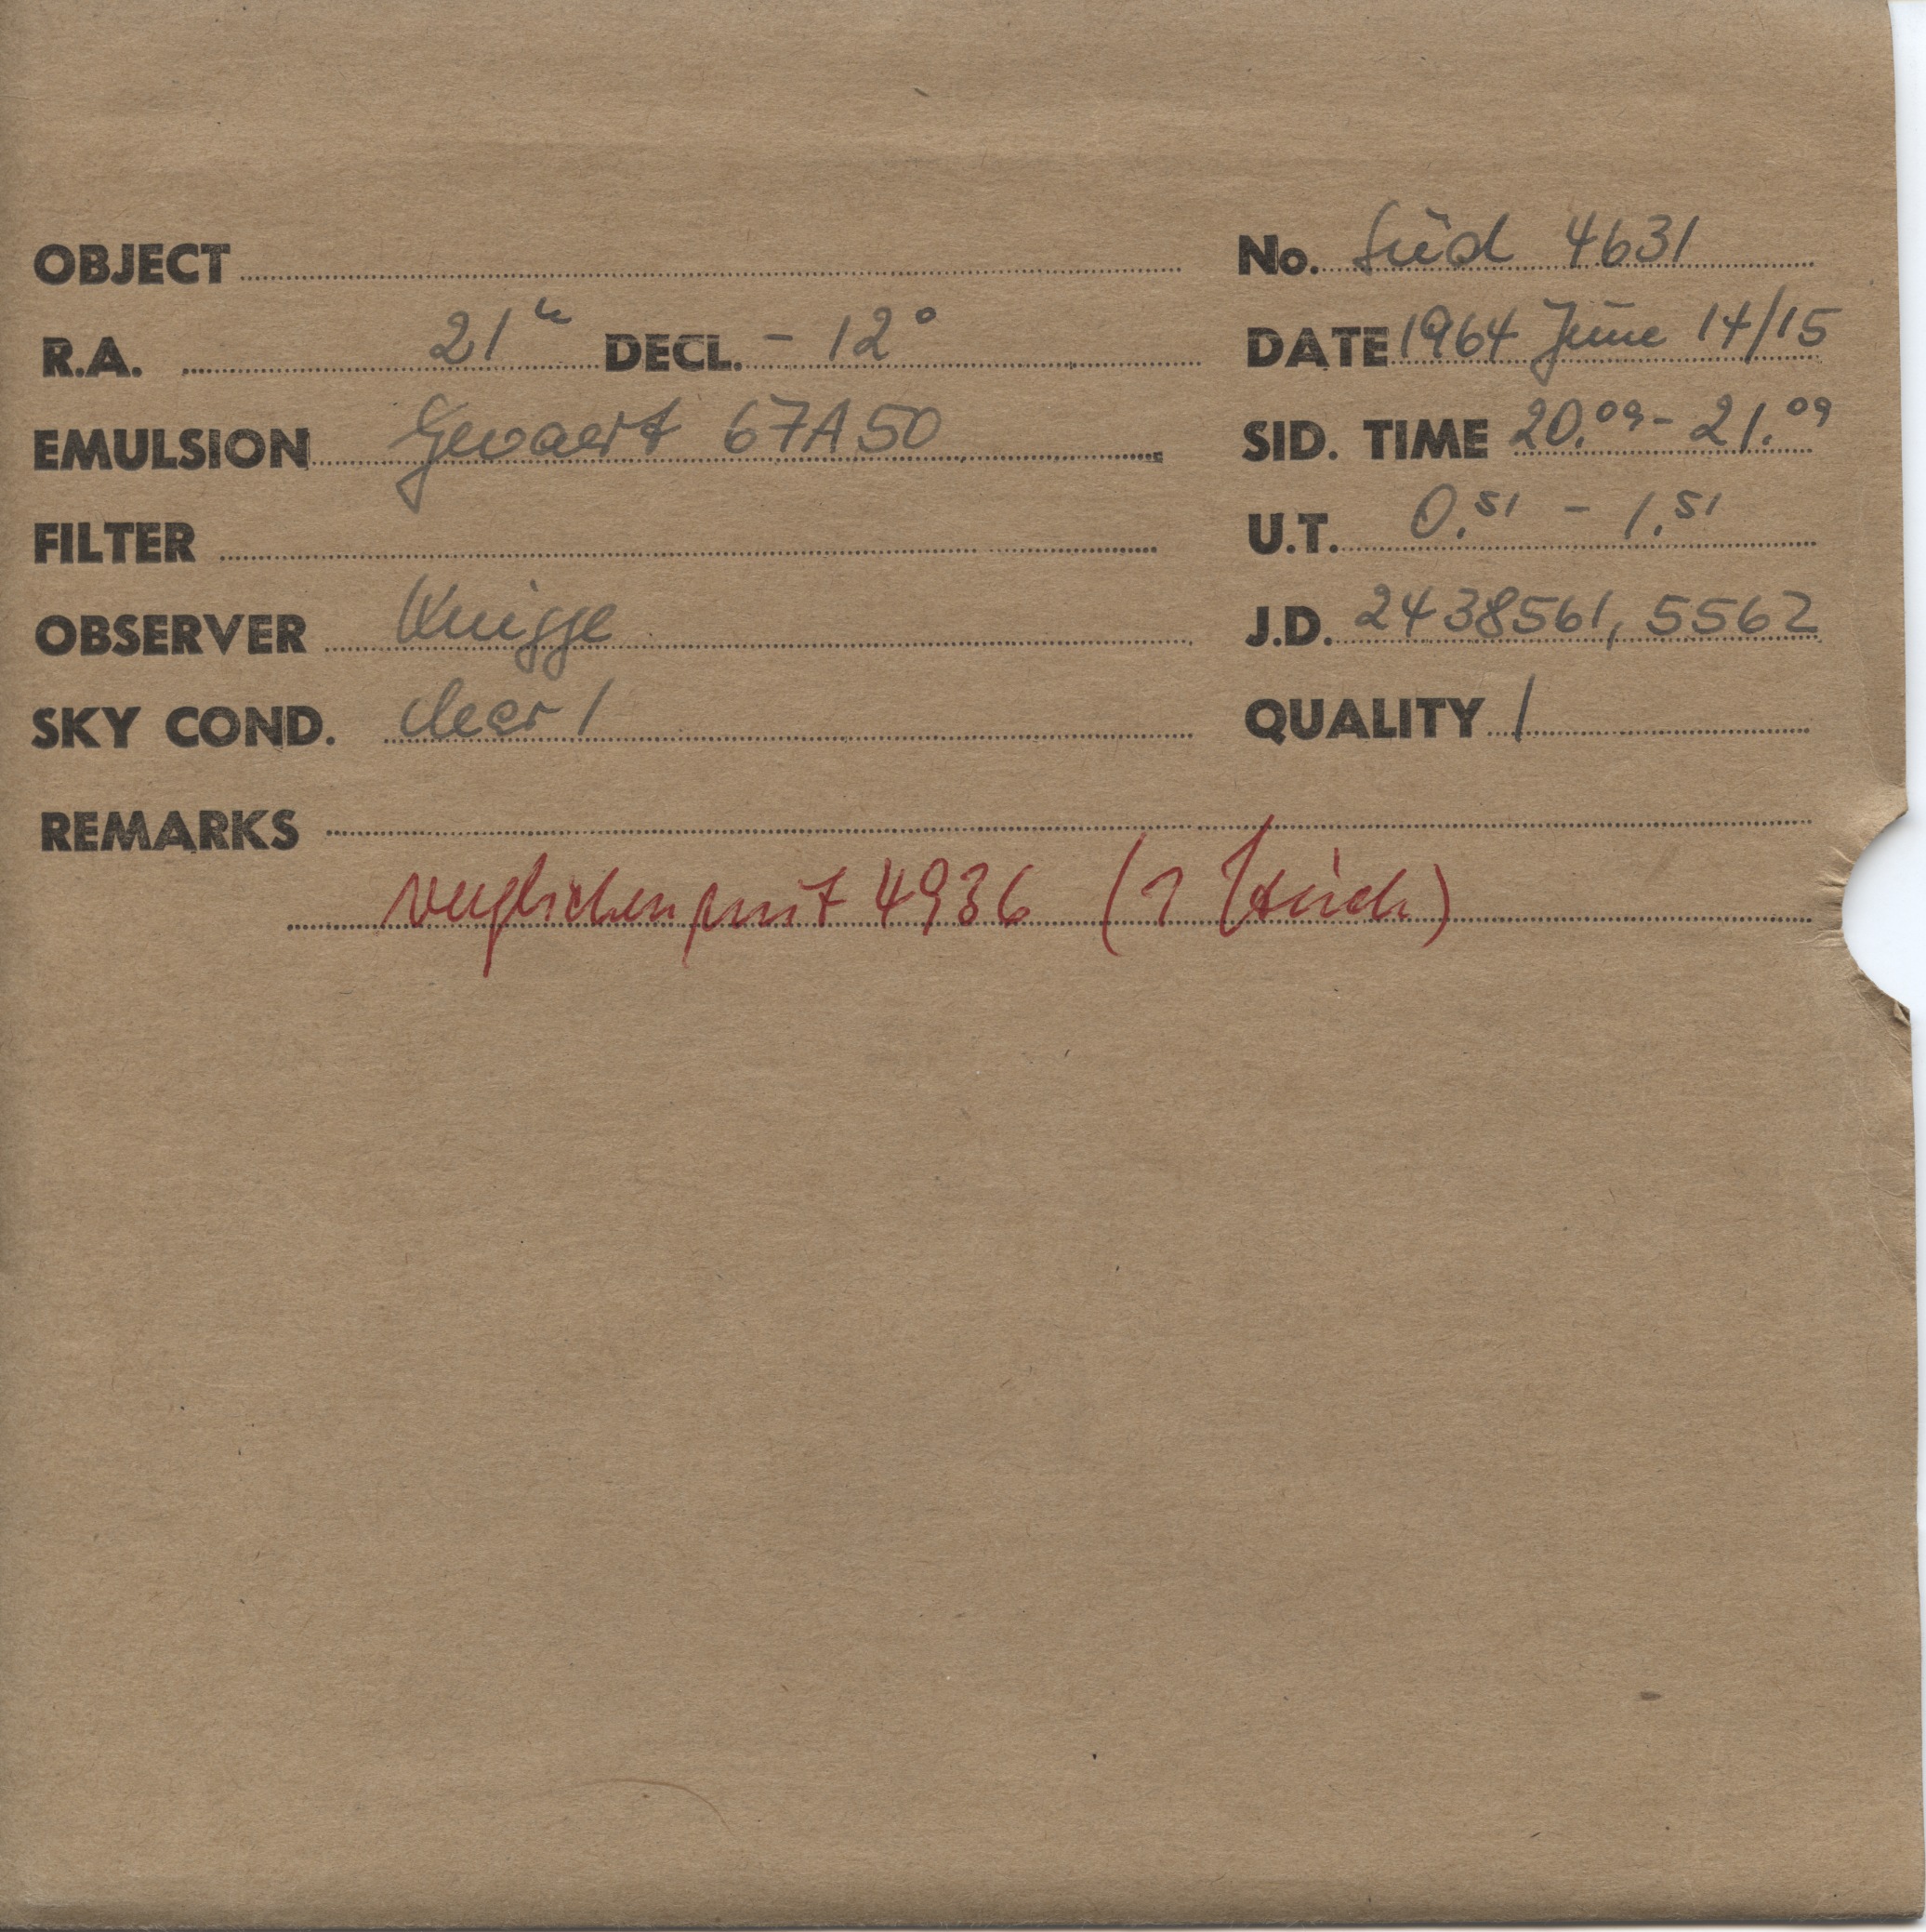 OBJECT No. Süd 4631
R.A. 21h DECL. - 12° DATE 1964 June 14/15
EMULSION Gevaert 67A50 SID. TIME 20.09 - 21.09
FILTER U.T. 0.51 - 1.51
OBSERVER Knigge J.D. 2438561,5562
SKY COND. clear 1 QUALITY 1
REMARKS
verglichen mit 4936 (1 Strich)